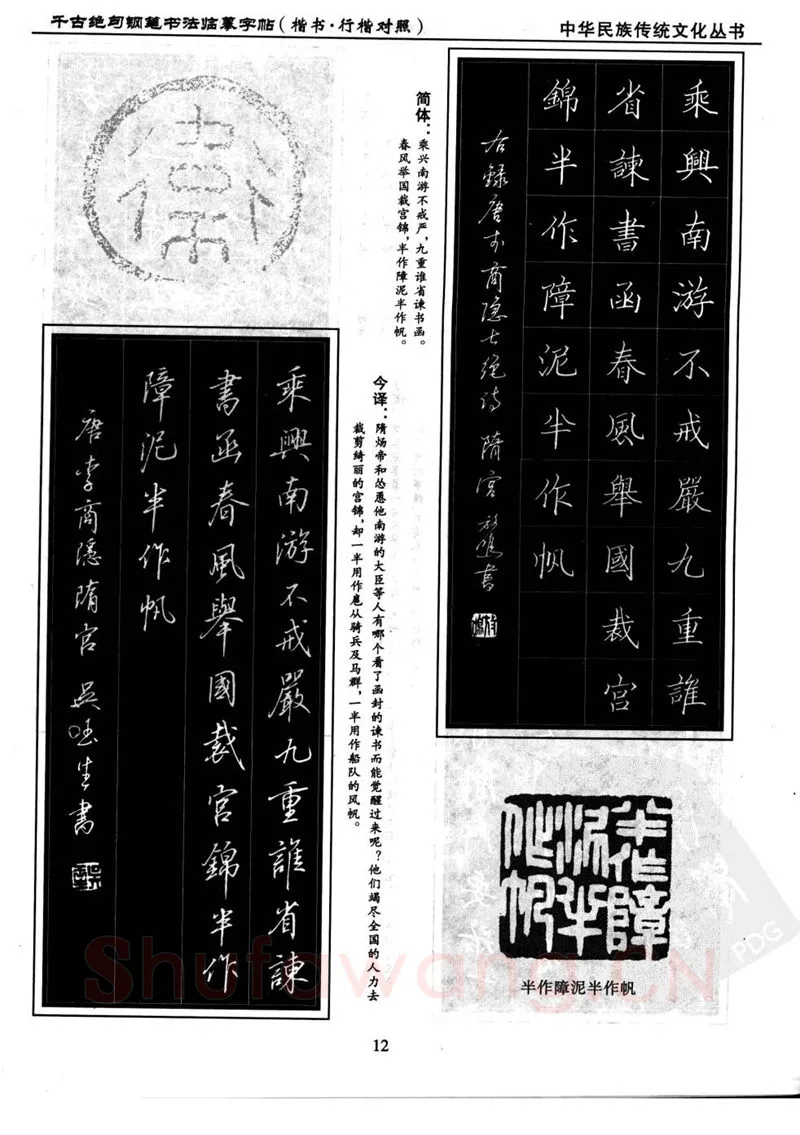 千古绝句钢笔书法临摹字帖（楷书·行楷对照）
中华民族传统文化丛书
乘興南游不戒嚴九重誰
省諫書函春風舉國裁宮
錦半作障泥半作帆
右錄唐李商隱七绝诗隋宫
書
简体：乘兴南游不戒严，九重谁省谏书函。
春风举国裁宫锦，半作障泥半作帆。
今译：隋炀帝和怂恿他南游的大臣等人有哪个看了函封的谏书而能觉醒过来呢？他们竭尽全国的人力去
裁剪绮丽的宫锦，却一半用作扈从骑兵及马群，一半用作船队的风帆。
乘興南游不戒嚴九重誰省諫
書函春風舉國裁宮錦半作
障泥半作帆
唐李商隱隋宫 吴
生書
半作障
泥半
作帆
半作障泥半作帆
Shufawang.CN
PDG
12